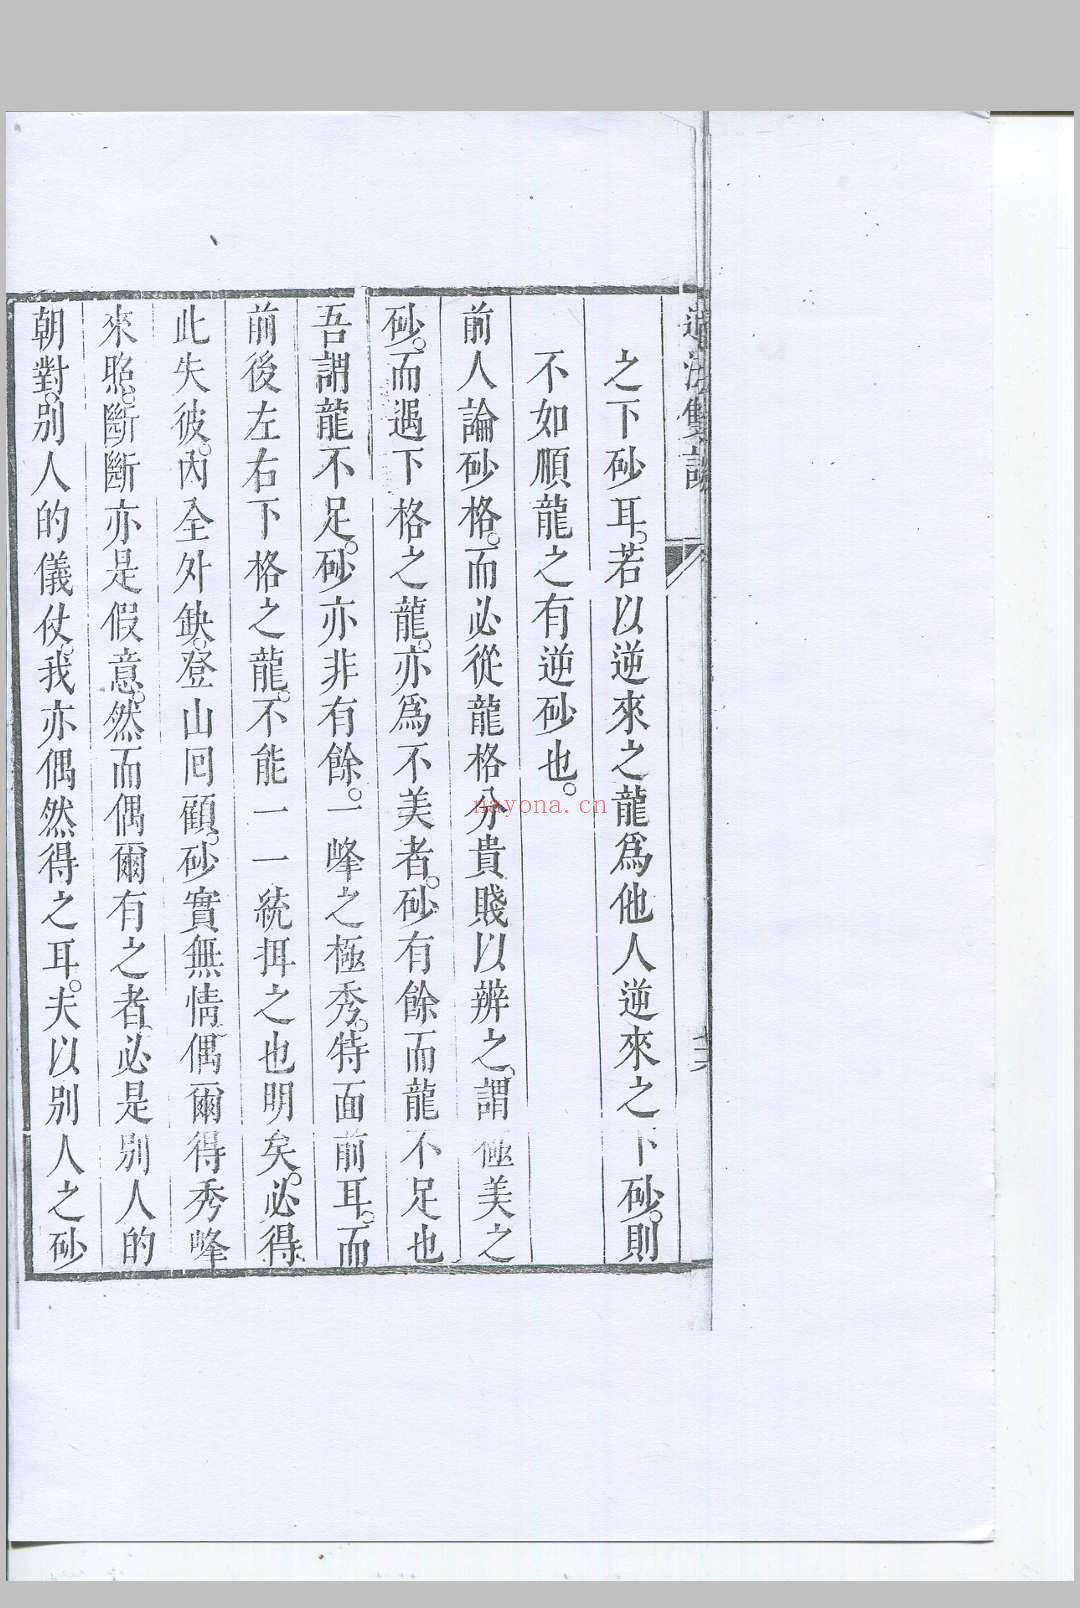 法雙
之下砂耳。若以逆來之龍爲他人逆來之下砂。則
不如順龍之有逆砂也。
前人論砂格。而必從龍格分貴賤以辨之。謂極美之
砂。而遇下格之龍。亦爲不美者。砂有餘而龍不足也
吾謂龍不足。砂亦非有餘。一峰之極秀。特面前耳。而
前後左右下格之龍。不能一一統拱之也明矣。必得
此失彼。內全外缺。登山囘顧。砂實無情。偶爾得秀峰
來照。斷斷亦是假意。然而偶爾有之者。必是別人的
朝對。別人的儀仗。我亦偶然得之耳。夫以別人之砂
nayona.cn